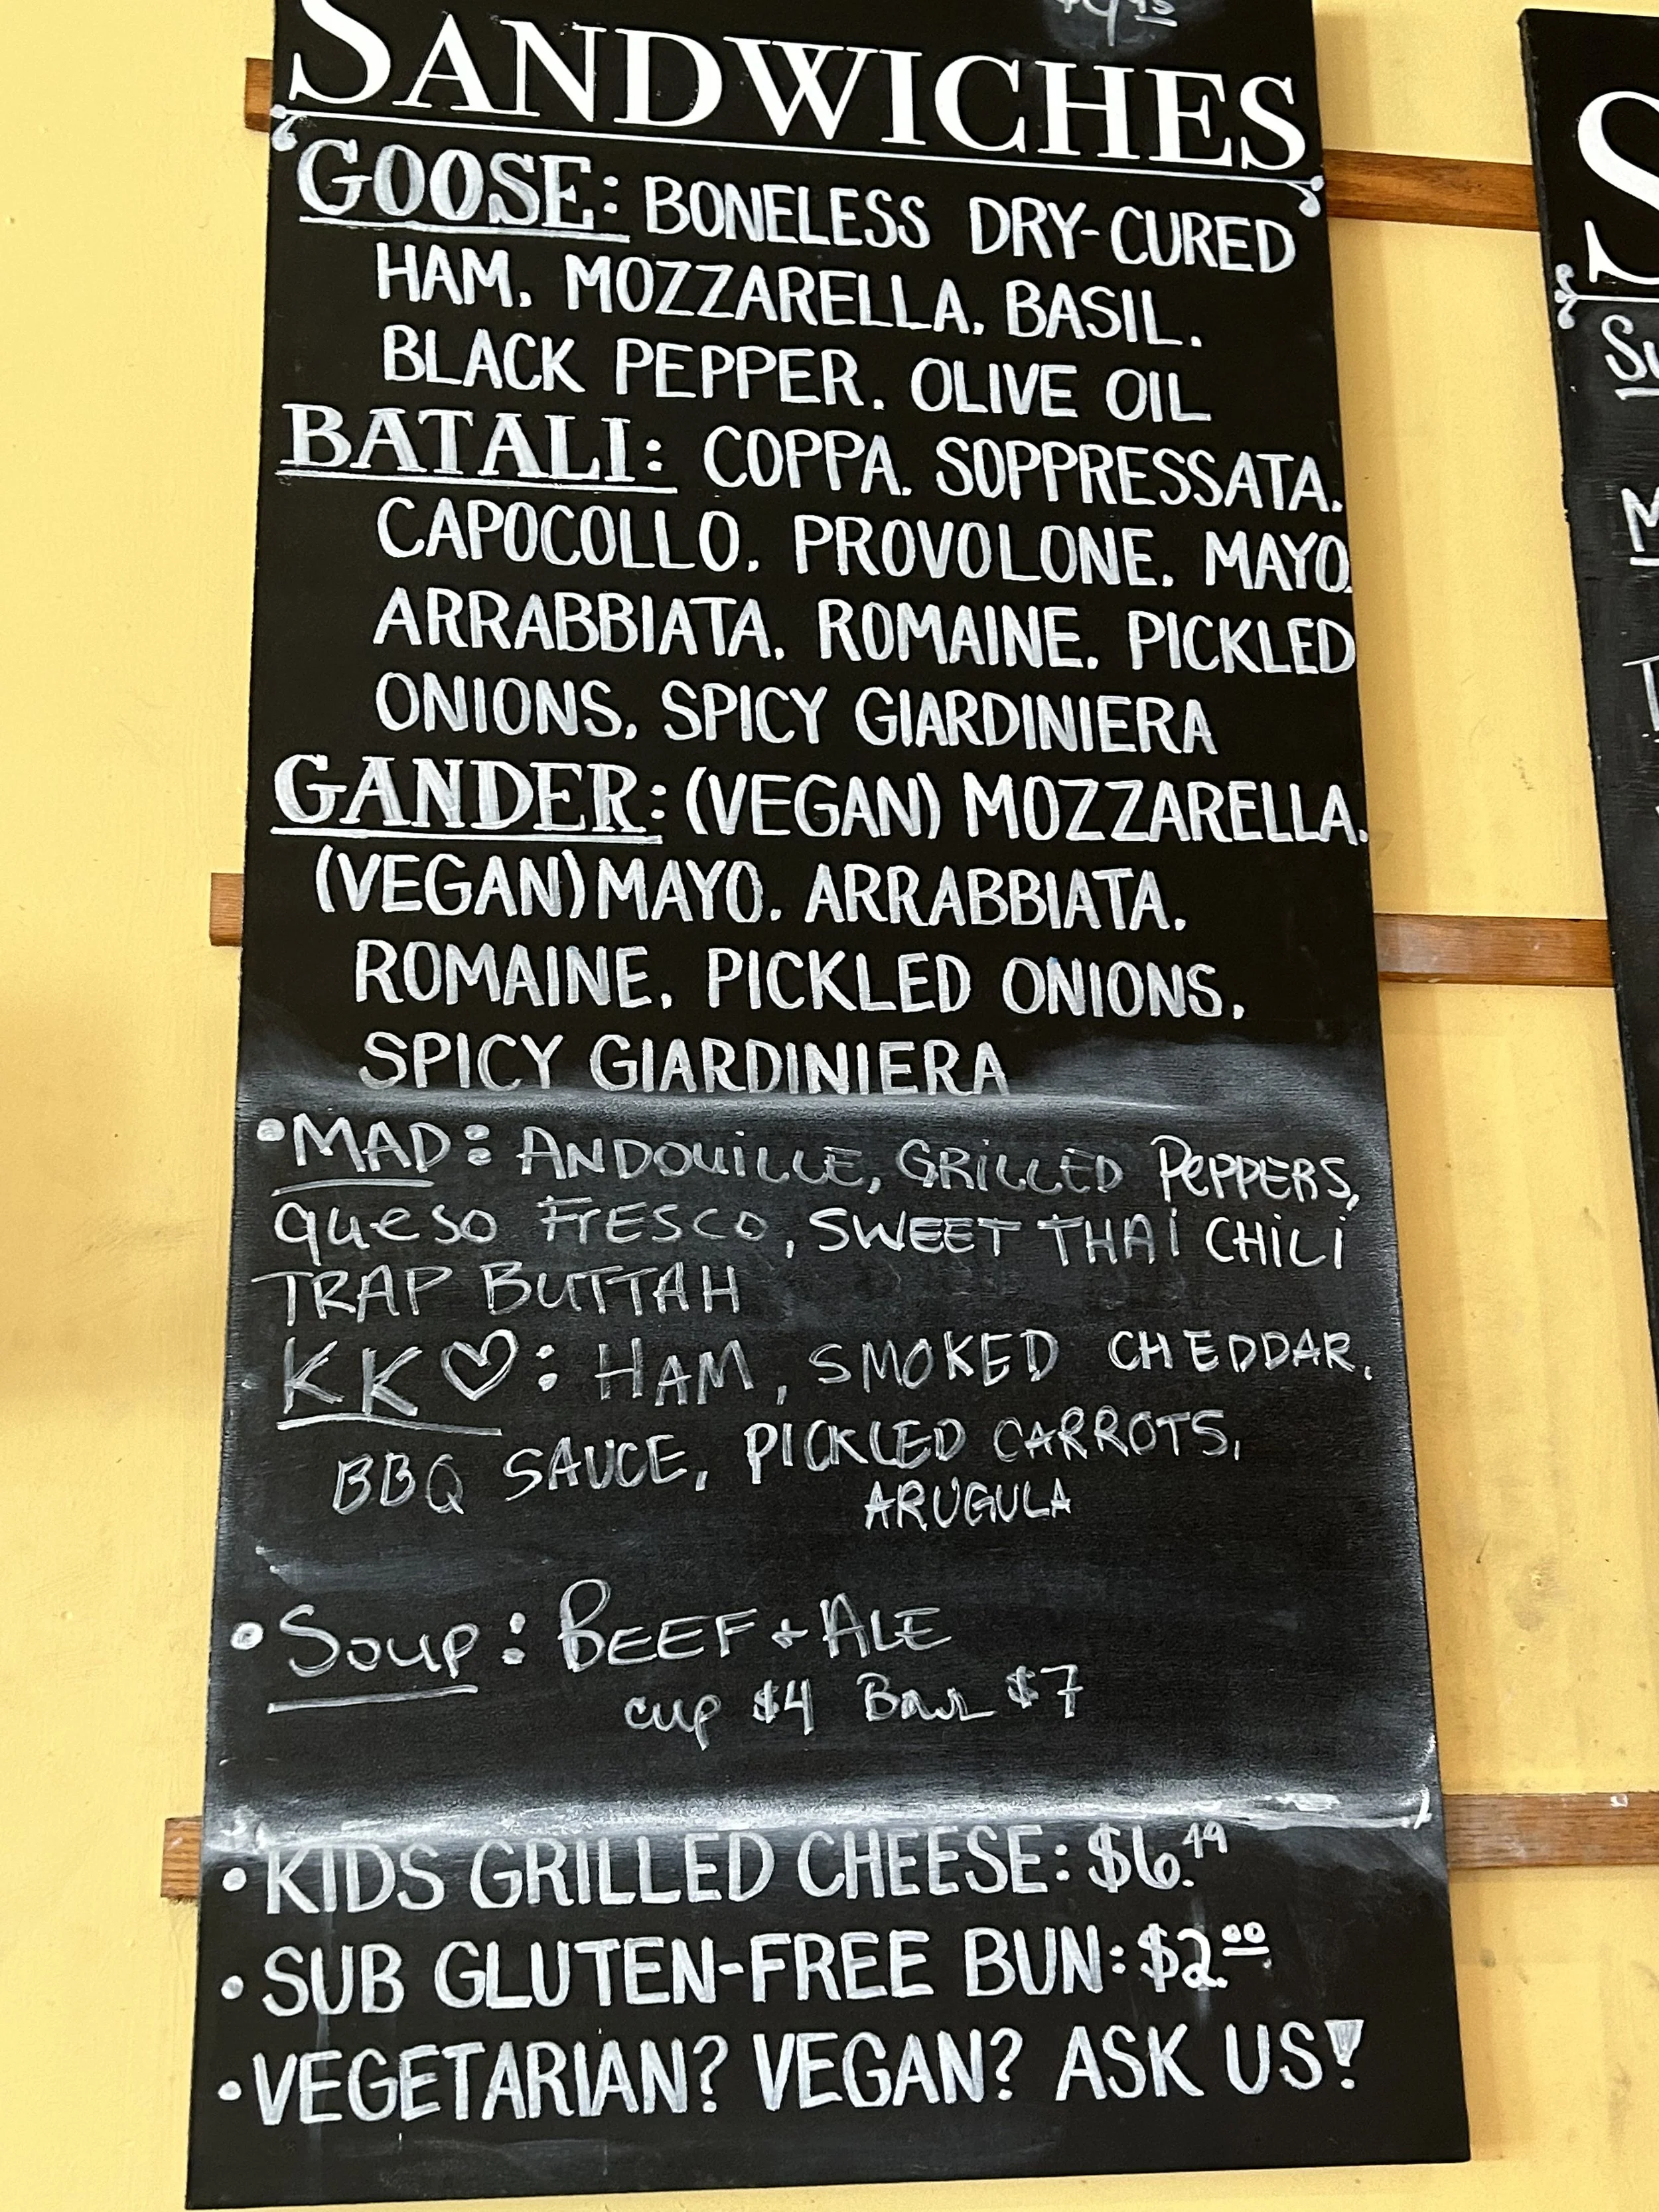 SANDWICHES
GOOSE: BONELESS DRY-CURED
HAM. MOZZARELLA. BASIL.
BLACK PEPPER. OLIVE OIL
BATALI: COPPA. SOPPRESSATA.
CAPOCOLLO. PROVOLONE. MAYO.
ARRABBIATA. ROMAINE. PICKLED
ONIONS. SPICY GIARDINIERA
GANDER: (VEGAN) MOZZARELLA.
(VEGAN) MAYO. ARRABBIATA.
ROMAINE. PICKLED ONIONS.
SPICY GIARDINIERA
•MAD: ANDOUILLE, GRILLED PEPPERS,
queso FRESCO, SWEET THAI CHILI
TRAP BUTTAH
KK♡: HAM, SMOKED CHEDDAR,
BBQ SAUCE, PICKLED CARROTS,
ARUGULA
•Soup: BEEF + ALE
cup $4 Bowl $7
•KIDS GRILLED CHEESE: $6.49
•SUB GLUTEN-FREE BUN: $2.00
•VEGETARIAN? VEGAN? ASK US!